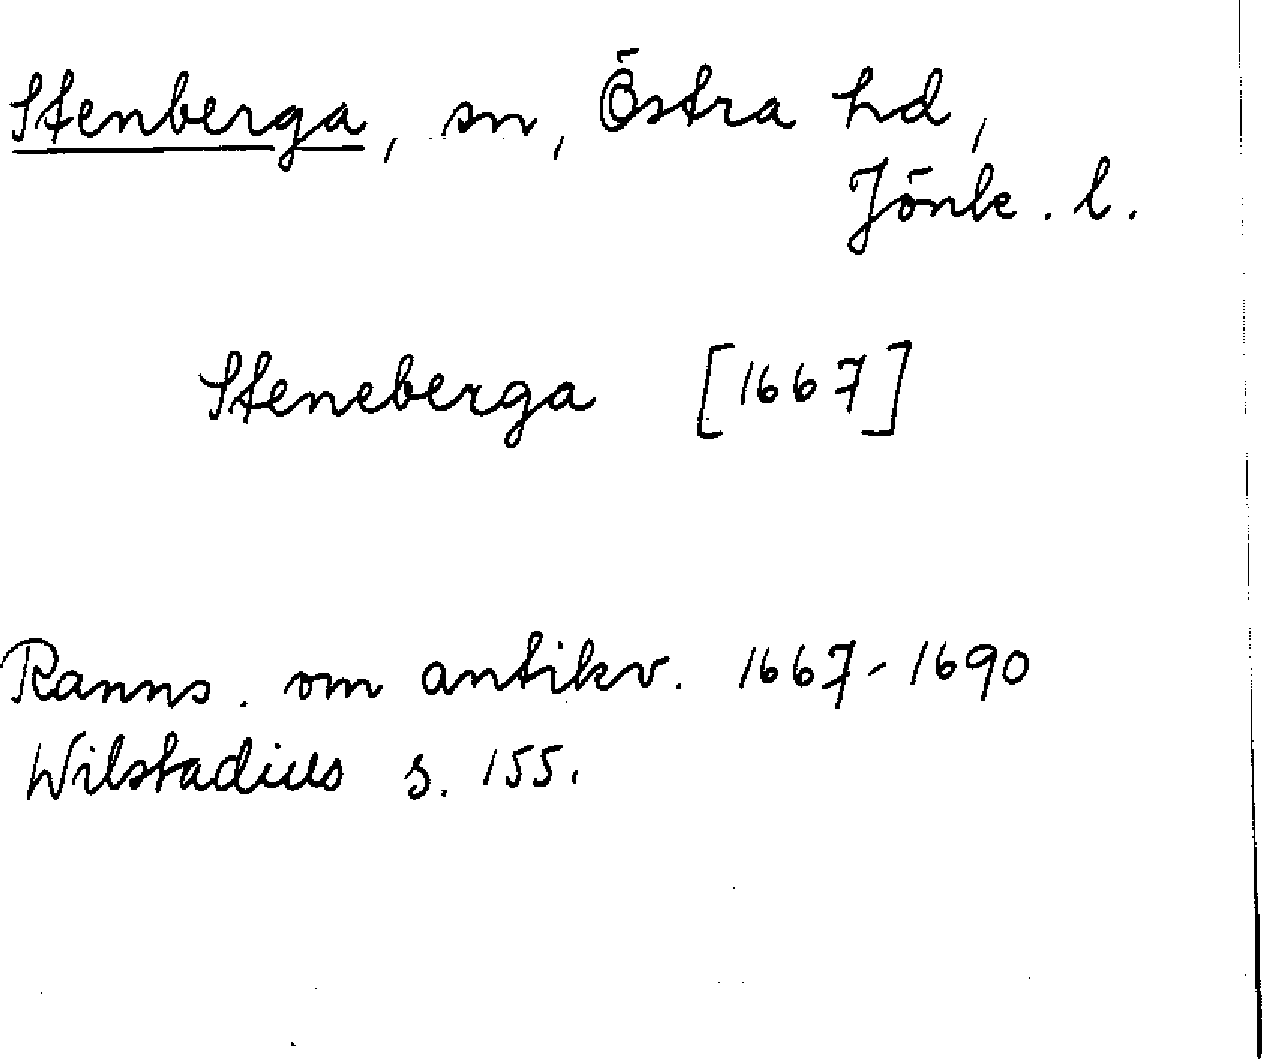 Stenberga, sn, Östra hd,
Jönk. l.
Steneberga [1667]
Ranns. om antikv. 1667-1690
Wilstadius s. 155.